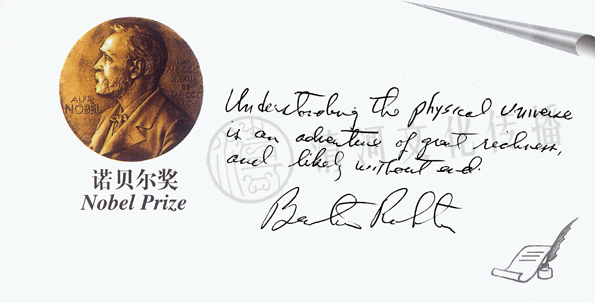 ALFR.
NOBEL
诺贝尔奖
Nobel Prize
Understanding the physical universe
is an adventure of great richness,
and likely without end.
Burton Richter